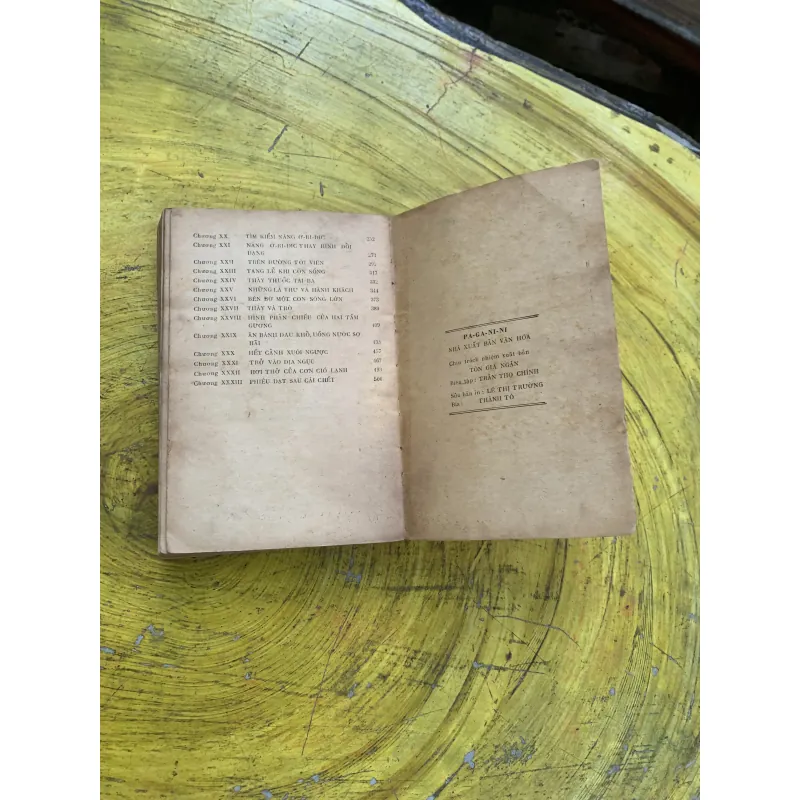 Chương XX TÌM KIẾM NÀNG Ơ-RI-DIC 252
Chương XXI NÀNG Ơ-RI-DIC THAY HÌNH ĐỔI
DẠNG
Chương XXII TRÊN ĐƯỜNG TỚI VIÊN
Chương XXIII TANG LỄ KHI CÒN SỐNG 317
Chương XXIV THẦY THUỐC TAI-BA
Chương XXV NHỮNG LÁ THƯ VÀ HÀNH KHÁCH 344
Chương XXVI BÊN BỜ MỘT CON SÔNG LỚN 373
Chương XXVII THẦY VÀ TRÒ
Chương XXVIII HÌNH PHẢN CHIẾU CỦA HAI TẤM
GƯƠNG
Chương XXIX ĂN BÁNH ĐAU KHỔ, UỐNG NƯỚC SỢ
HÃI
Chương XXX HẾT CẢNH XUÔI NGƯỢC 457
Chương XXXI TRỞ VÀO ĐỊA NGỤC 467
Chương XXXII HƠI THỞ CỦA CƠN GIÓ LẠNH
Chương XXXIII PHIÊU DẠT SAU CÁI CHẾT
PA-GA-NI-NI
NHÀ XUẤT BẢN VĂN HOÁ
Chịu trách nhiệm xuất bản
TÔN GIA NGÂN
Biên tập : TRẦN THỌ CHÍNH
Sửa bản in : LÊ THỊ TRƯỜNG
Bìa : THÀNH TÔ